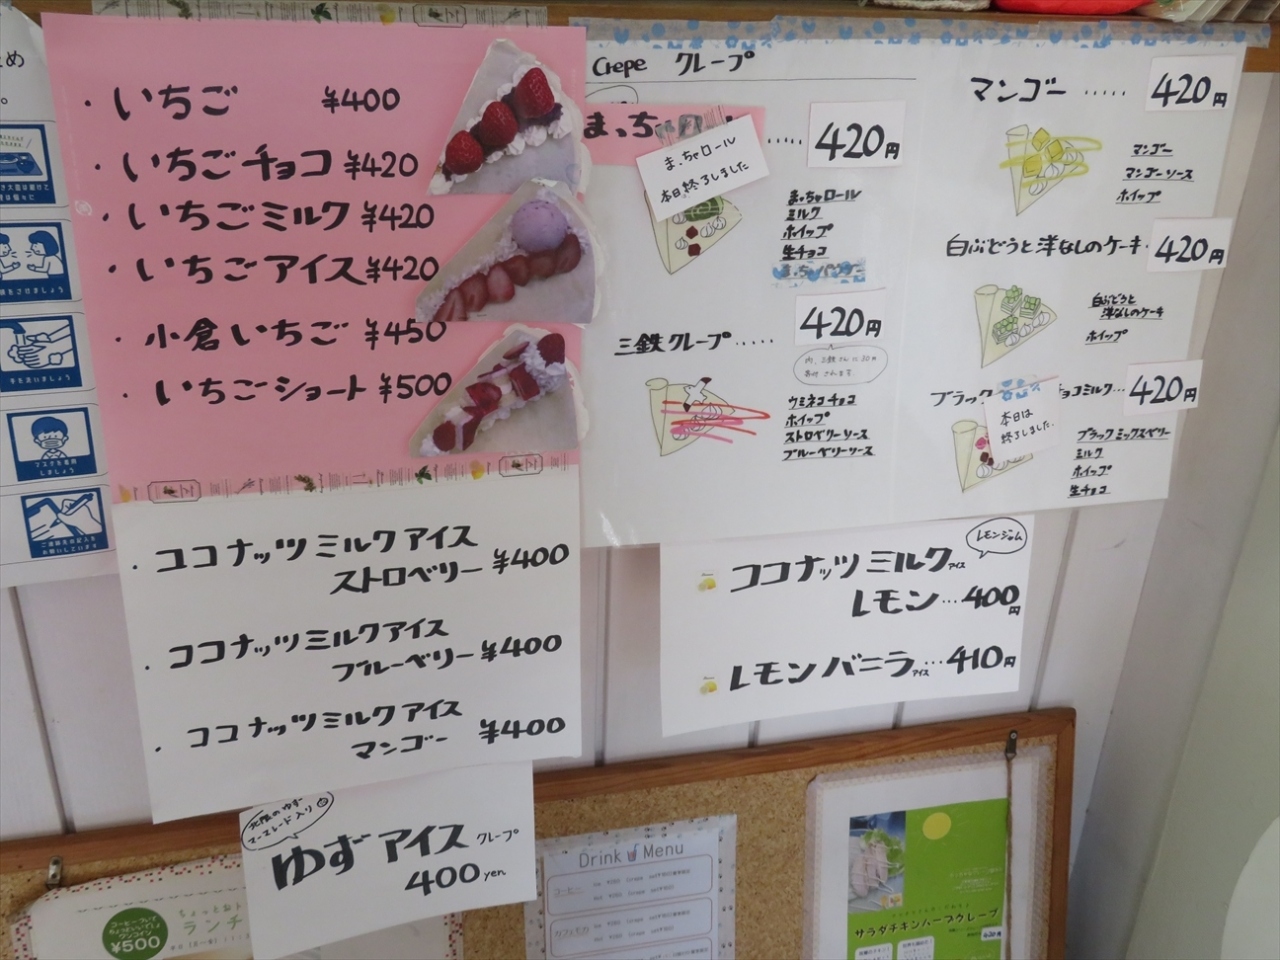 ・いちご ¥400
・いちごチョコ ¥420
・いちごミルク ¥420
・いちごアイス ¥420
・小倉いちご ¥450
いちごショート ¥500
・ココナッツミルクアイス
ストロベリー ¥400
・ココナッツミルクアイス
ブルーベリー ¥400
・ココナッツミルクアイス
マンゴー ¥400
ゆずアイス クレープ
400 yen
Crepe クレープ
まっちゃ
420円
まっちゃロール
本日終了しました
まっちゃロール
ミルク
ホイップ
生チョコ
三鉄クレープ.....
420円
ウミネコチョコ
ホイップ
ストロベリーソース
ブルーベリーソース
マンゴー..... 420円
マンゴー
マンゴーソース
ホイップ
白ぶどうと洋なしのケーキ 420円
白ぶどうと
洋なしのケーキ
ホイップ
ブラック チョコミルク... 420円
本日は
終了しました.
ブラックミックスベリー
ミルク
ホイップ
生チョコ
レモンジャム
ココナッツミルクアイス
レモン...400円
レモンバニラアイス...410円
マスクを着用
しましょう
手を洗いましょう
¥500
ランチ
Drink Menu
コーヒー
カフェモカ
サラダチキンムーブクレープ